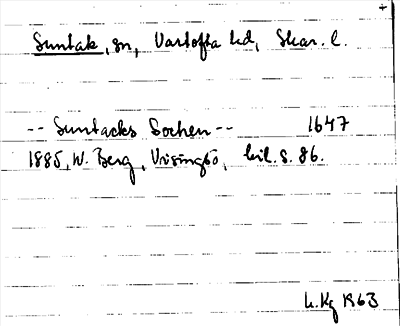 Suntak, sn, Vartofta hd, Skar. l.
-- Suntacks Sochen -- 1647
1885, W. Berg, Visingsö, bil. s. 86.
L. Kg 1963